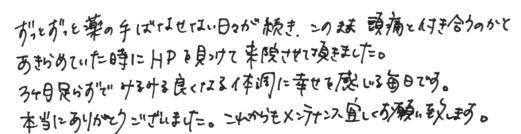 ずっとずっと薬の手ばなせない日々が続き、この先頭痛と付き合うのかと
あきらめていた時にHPを見つけて来院させて頂きました。
3ヶ月足らずでみるみる良くなる体調に幸せを感じる毎日です。
本当にありがとうございました。これからもメンテナンス宜しくお願い致します。